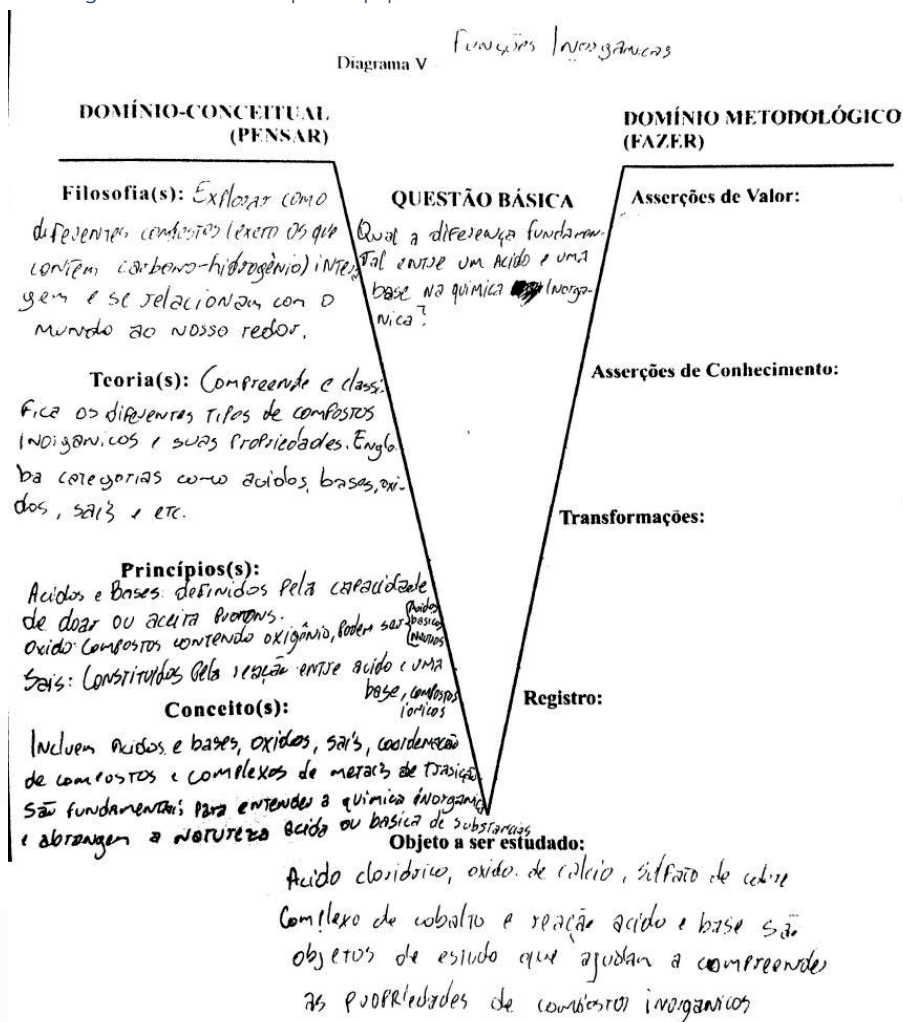 Funções Inorgânicas
Diagrama V
DOMÍNIO-CONCEITUAL
(PENSAR)
Filosofia(s): Explorar como
diferentes compostos (exeto os que
contem carbono-hidrogênio) intera
gem e se relacionam com o
mundo ao nosso redor.
Teoria(s): Compreende e classi-
fica os diferentes tipos de compostos
inorganicos e suas propriedades. Englo-
ba categorias como acidos, bases, oxi-
dos, sais e etc.
Princípios(s):
Acidos e Bases: definidos pela capacidade
de doar ou aceita protons.
Oxido: compostos contendo oxigênio, podem ser
Acidos
basicos
Neutros
Sais: Constituidos pela reação entre acido e uma
base, compostos
ionicos
Conceito(s):
Incluem Acidos e bases, oxidos, sais, coordenação
de compostos e complexos de metais de trasição
São fundamentais para entender a quimica inorganica
e abrangem a natureza acida ou basica de substancias
QUESTÃO BÁSICA
Qual a diferença fundamen-
tal entre um Acido e uma
base na quimica Inorga-
nica?
DOMÍNIO METODOLÓGICO
(FAZER)
Asserções de Valor:
Asserções de Conhecimento:
Transformações:
Registro:
Objeto a ser estudado:
Acido cloridrico, oxido de calcio, sulfato de cobre
Complexo de cobalto e reação acido e base são
objetos de estudo que ajudam a compreender
as propriedades de compostos inorganicos